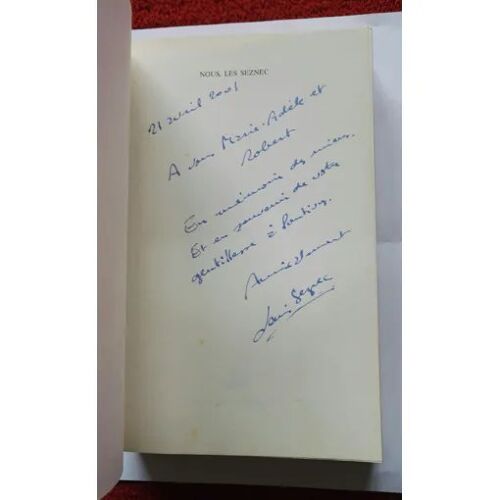 NOUS, LES SEZNEC
21 avril 2001
A vous Marie-Adèle et
Robert
En mémoire des miens.
Et en souvenir de votre
gentillesse à Pontivy.
Amicalement
Seznec